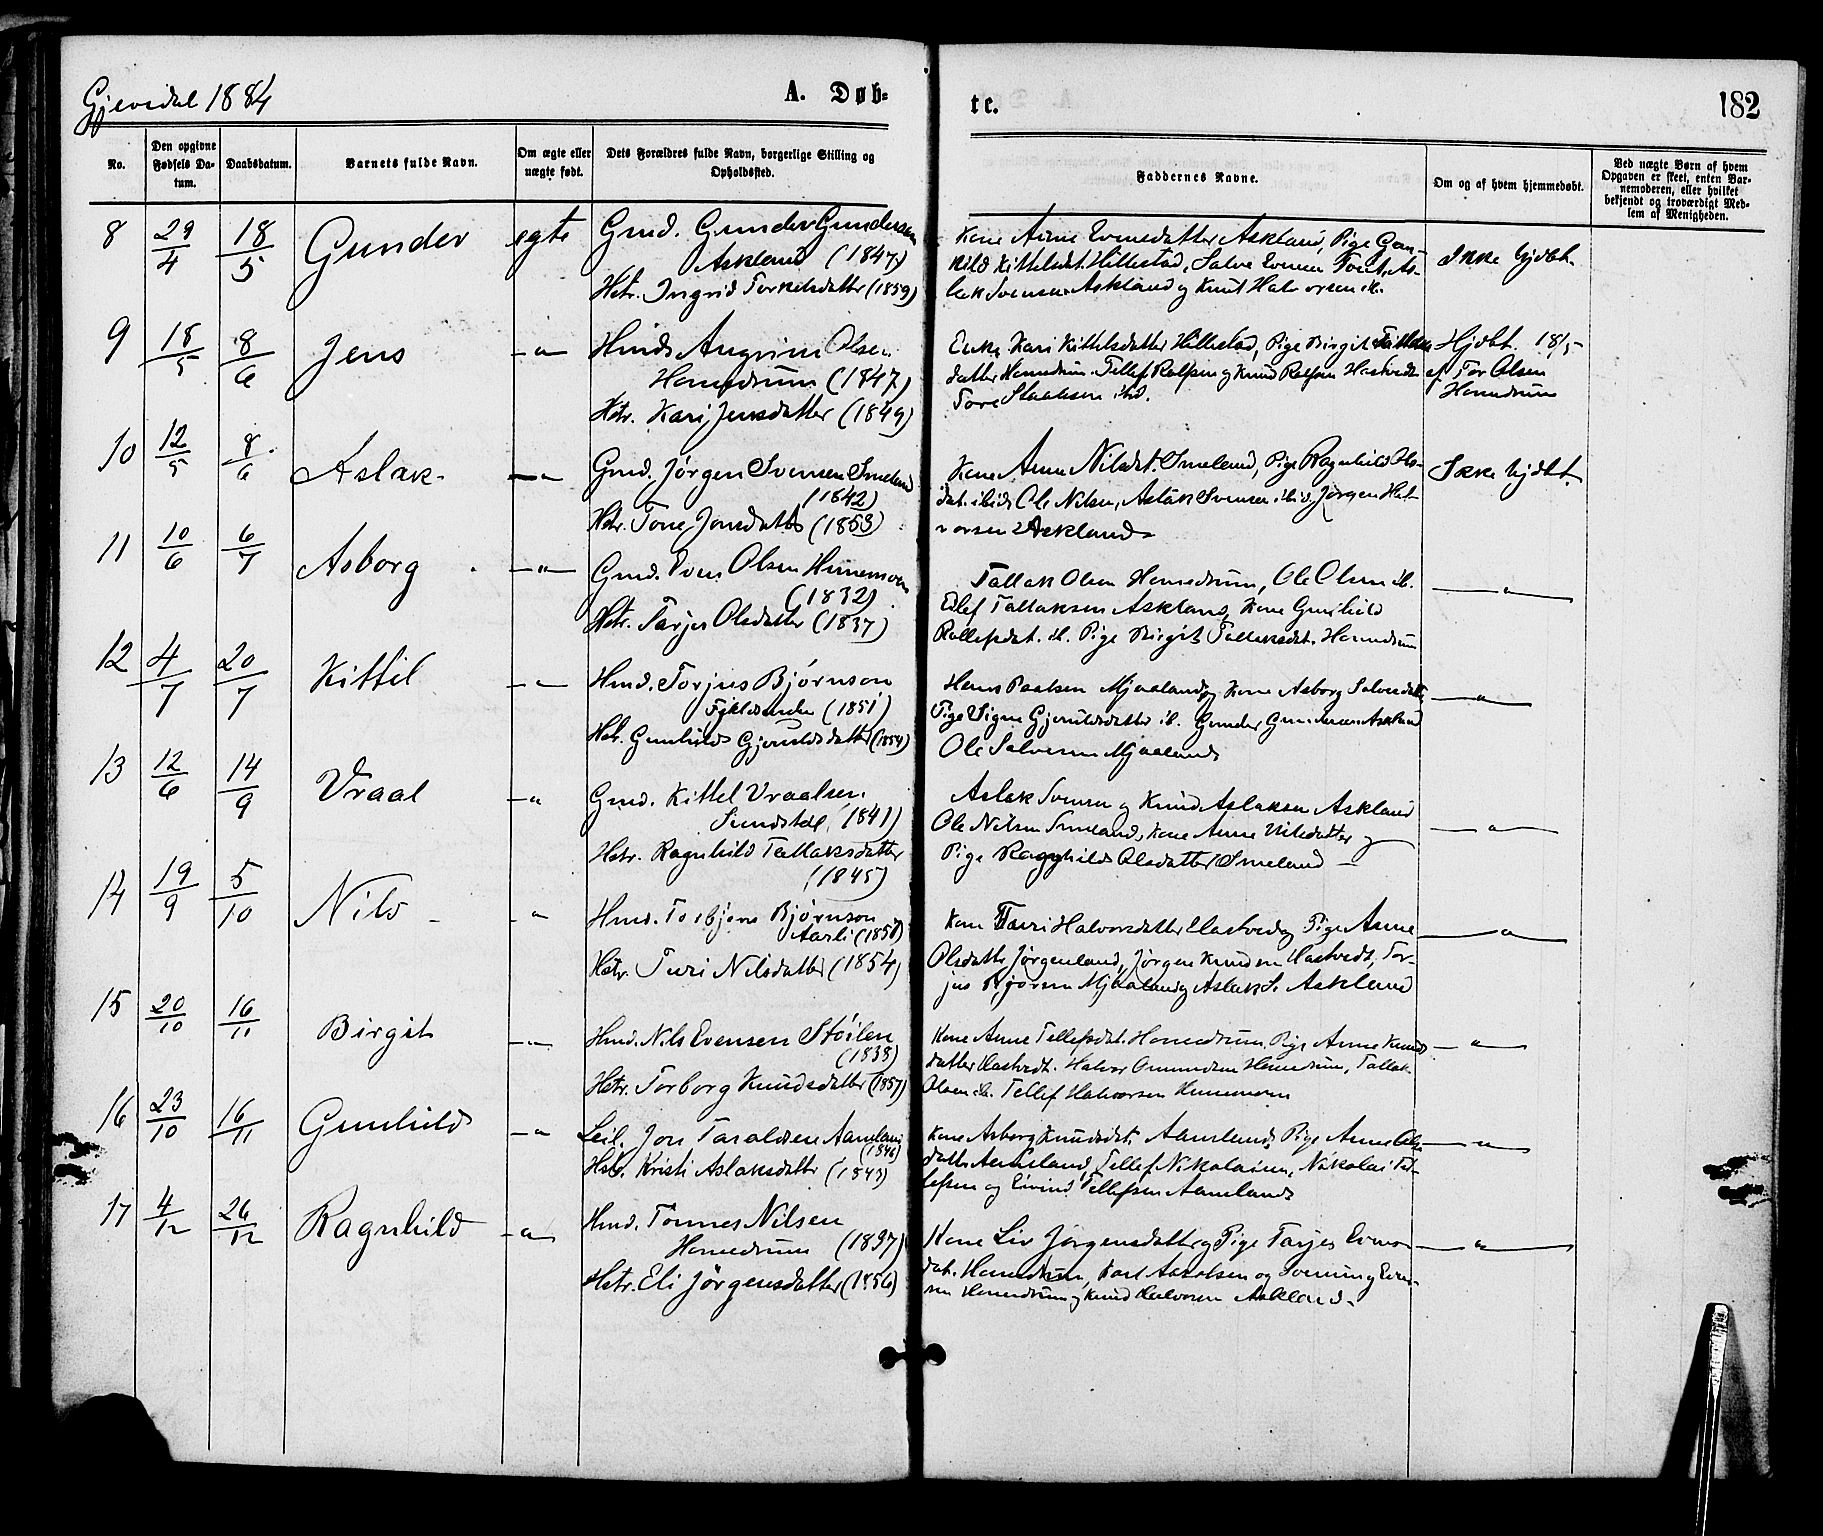 Gjevedal 1884
A. Døb-
te.
182
No.
Den opgivne Fødsels Da-tum.
Daabsdatum.
Barnets fulde Navn.
Om ægte eller uægte født.
Dets Forældres fulde Navn, borgerlige Stilling og Opholdssted.
Faddernes Navne.
Om og af hvem hjemmedøbt.
Ved uægte Børn af hvem Opgaven er skeet, enten Bar-nemoderen, eller hvilket bekjendt og troværdigt Med-lem af Menigheden.
8 29/4 18/5 Gunder egte
Gmd. Gunder Gundersen
Askland (1847)
Hstr. Ingrid Terkelsdatter (1859)
Kone Anne Evensdatter Askland, Pige Gun-
hild Kittelsdt. Hillestad, Salve Evensen As-
lak Svensen Askland og Knut Halvorsen ib.
Ikke hjdbt.
9 18/5 8/6 Jens -"-
Hmd. Angrim Olsen
Homdrum (1847)
Hstr. Kari Jensdatter (1849)
Enke Kari Kittelsdatter Hillestad, Pige Birgit Tallaks
datter Homdrum. Tellef Rolfsen og Knud Rolfsen Hastvedt
Tore ibid.
Hjdbt. 18/5
af Tor Olsen
Homdrum
10 12/5 8/6 Aslak -"-
Gmd. Jørgen Svensen Smeland
(1842)
Hstr. Tone Jonsdatter (1853)
Kone Anne Nilsdt. Smeland, Pige Ragnhild Ols-
dat. ibid. Ole Nilsen, Aslak Svensen ibid. Jørgen Hal-
vorsen Askland
Ikke hjdbt
11 10/6 6/7 Asborg -"-
Gmd. Even Olsen Hinnemoen
(1832)
Hstr. Tarjer Olsdatter (1837)
Tallak Olsen Homdrum, Ole Olsen ib.
Edlef Tallaksen Askland, Kone Gunhild
Rollefsdat. ib. Pige Birgit Tallaksdt. Homdrum
-"-
12 4/7 20/7 Kittil -"-
Hmd. Torjus Bjørnson
(1851)
Hstr. Gunhild Gjeruldsdatter (1854)
Hans Paalsen Mjaaland og Kone Asborg Salvesdatter
Pige Signe Gjeruldsdatter ib. Gunder Gundersen Askland
Ole Salvesen Mjaaland
-"-
13 12/6 14/9 Vraal -"
Gmd. Kittel Vraalsen
Sundstøl (1841)
Hstr. Ragnhild Tallaksdatter
(1845)
Aslak Svensen og Knud Aslaksen Askland
Ole Nilsen Smeland, Kone Anne Nilsdatter og
Pige Ragnhild Olsdatter Smeland -
-"-
14 19/9 5/10 Nils -"
Hmd. Torbjørn Bjørnson
Aasli (1850)
Hstr. Turi Nilsdatter (1854)
Kone Turi Halvorsdatter Hastvedt og Pige Anne
Olsdatter Jørgenland, Jørgen Knudsen Hastvedt, Tor-
jus Bjørnsen Mjaaland og Aslak S. Askland
-"-
15 20/10 16/11 Birgit -"-
Hmd. Nils Evensen Støilen
(1838)
Hstr. Torborg Knudsdatter (1857)
Kone Anne Tellefsdat. Homdrum, Pige Anne Knuds
datter Hastvedt. Halvor Omundsen Homdrum, Tallak
Olsen ib. Tellef Halvorsen Hinnemoen
-"-
16 23/10 16/11 Gunhild -"
Leil. Jon Taraldsen Aamland
(1846)
Hstr. Kristi Aslaksdatter (1843)
Kone Asborg Knudsdt. Aamland, Pige Anne Ols
datter Aamland, Tellef Nikolaisen, Nikolai Tel-
lefsen og Eivind Tellefsen Aamland
-"-
17 4/12 26/12 Ragnhild -"-
Hmd. Tønnes Nilsen
Homdrum (1837)
Hstr. Eli Jørgensdatter (1856)
Kone Liv Jørgensdatter og Pige Tarjer Evens
dat. Homdrum, og Even-
sen Homdrum og Knud Halvorsen Askland.
-"-